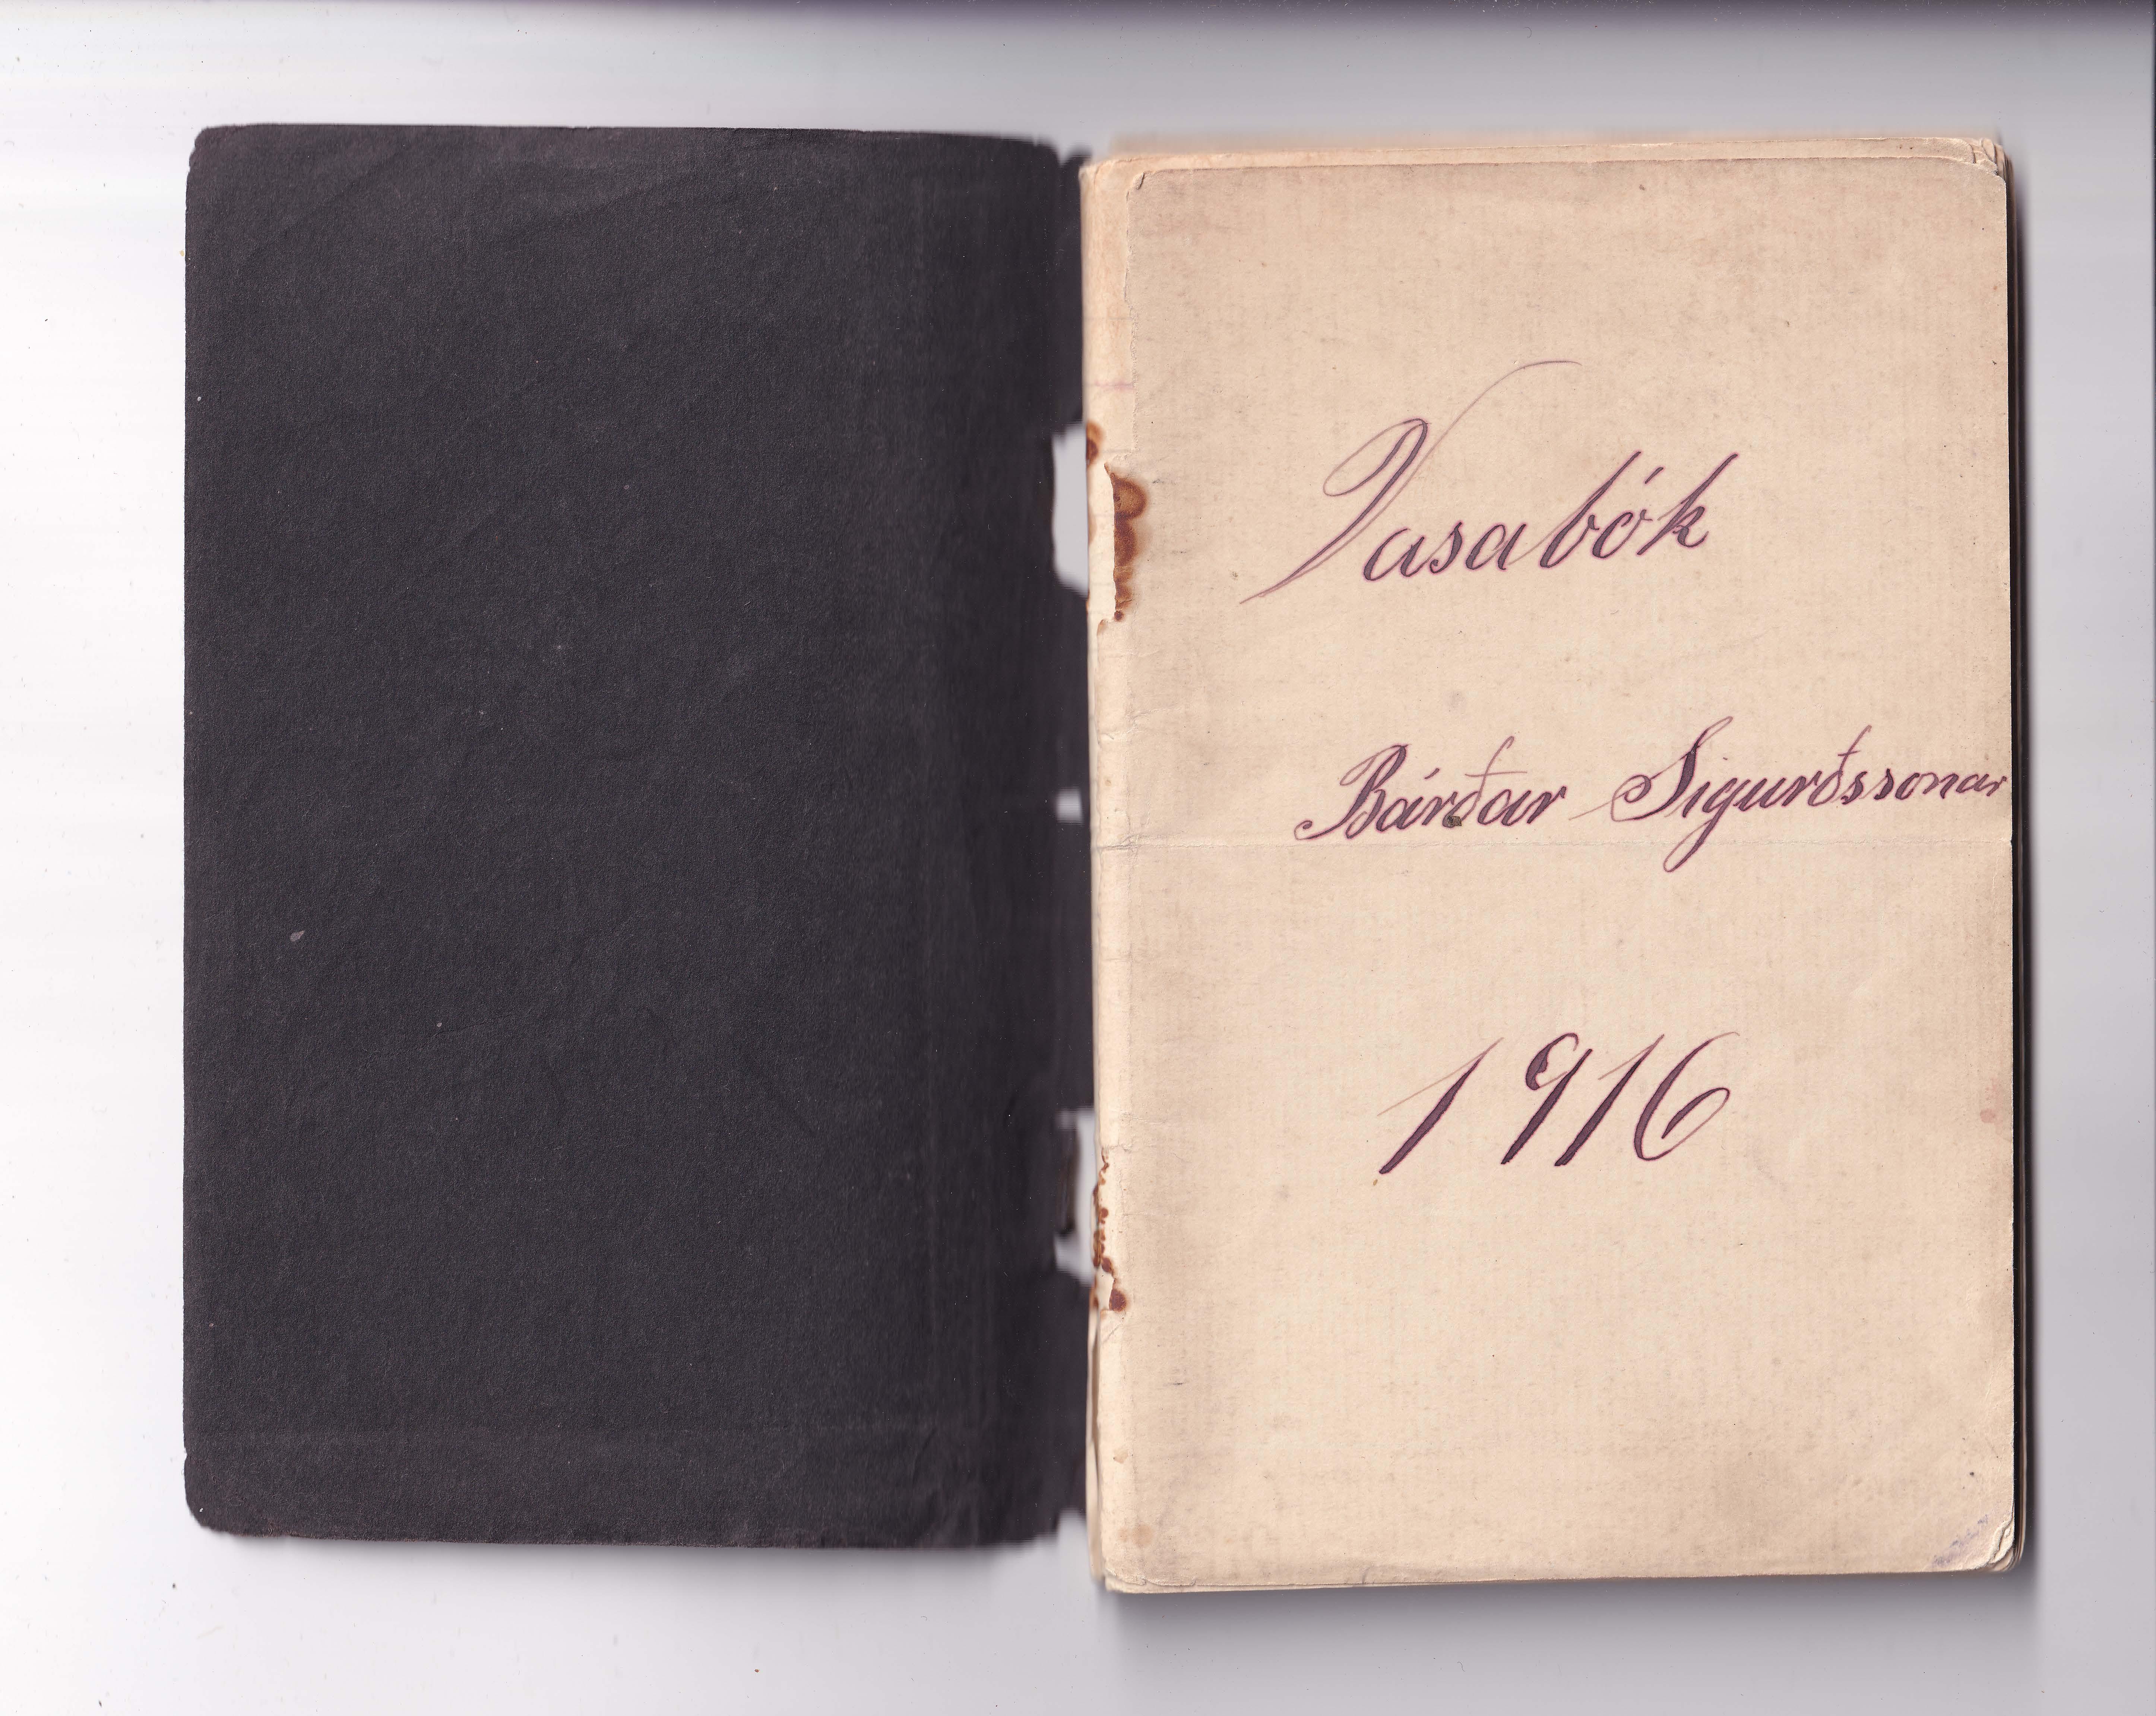 Vasabók
Bárðar Sigurðssonar
1916